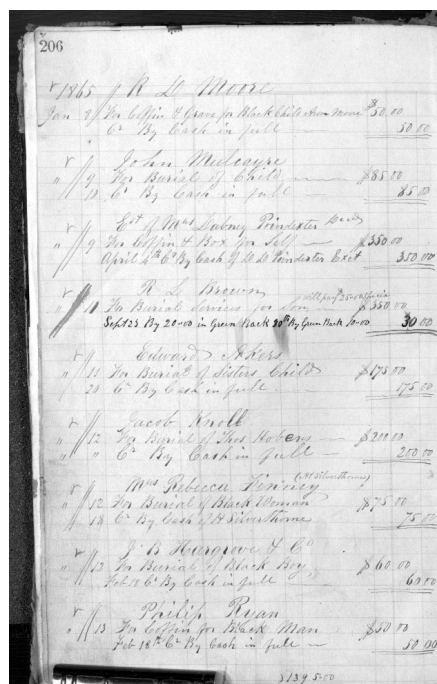 206
1865 R D Moore
Jan 8 For Coffin & Grave for Black Child $50.00
Cr By Cash in full 50.00
John Mulcayre
" 9 For Burial of Child $85.00
" 10 Cr By Cash in full 85.00
Est of Mrs Dabney Poindexter Decd
" 9 For Coffin & Box for Self $350.00
April 4th Cr By Cash of Poindexter Exct 350.00
R L Brown
" 11 For Burial Services for Son $350.00
Sept 23 By 20.00 in Green Back 20th By Green Back 10.00 30 00
Edward Akers
" 11 For Burial of Sisters Child $175.00
" 20 Cr By Cash in full 175.00
Jacob Knoll
" 12 For Burial of Thos Hobens $200.00
" " Cr By Cash in full 200.00
Mrs Rebecca Finney (H Silverthorne)
" 12 For Burial of Black Woman $75.00
" 18 Cr By Cash of H Silverthorne 75.00
J B Hargrove & Co
" 13 For Burial of Black Boy $60.00
Feb 18 Cr By Cash in full 60.00
Philip Ryan
" 13 For Coffin for Black Man $50 00
Feb 18th Cr By Cash in full 50 00